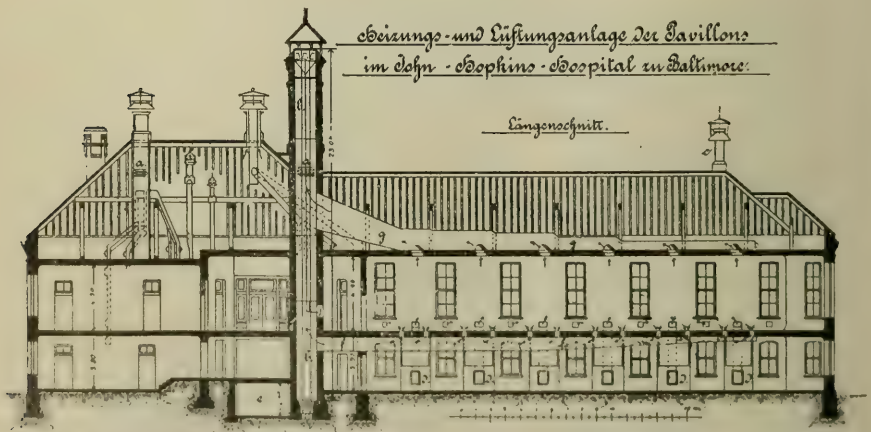 Heizungs- und Lüftungsanlage der Pavillons
im John-Hopkins-Hospital zu Baltimore.
Längenschnitt.